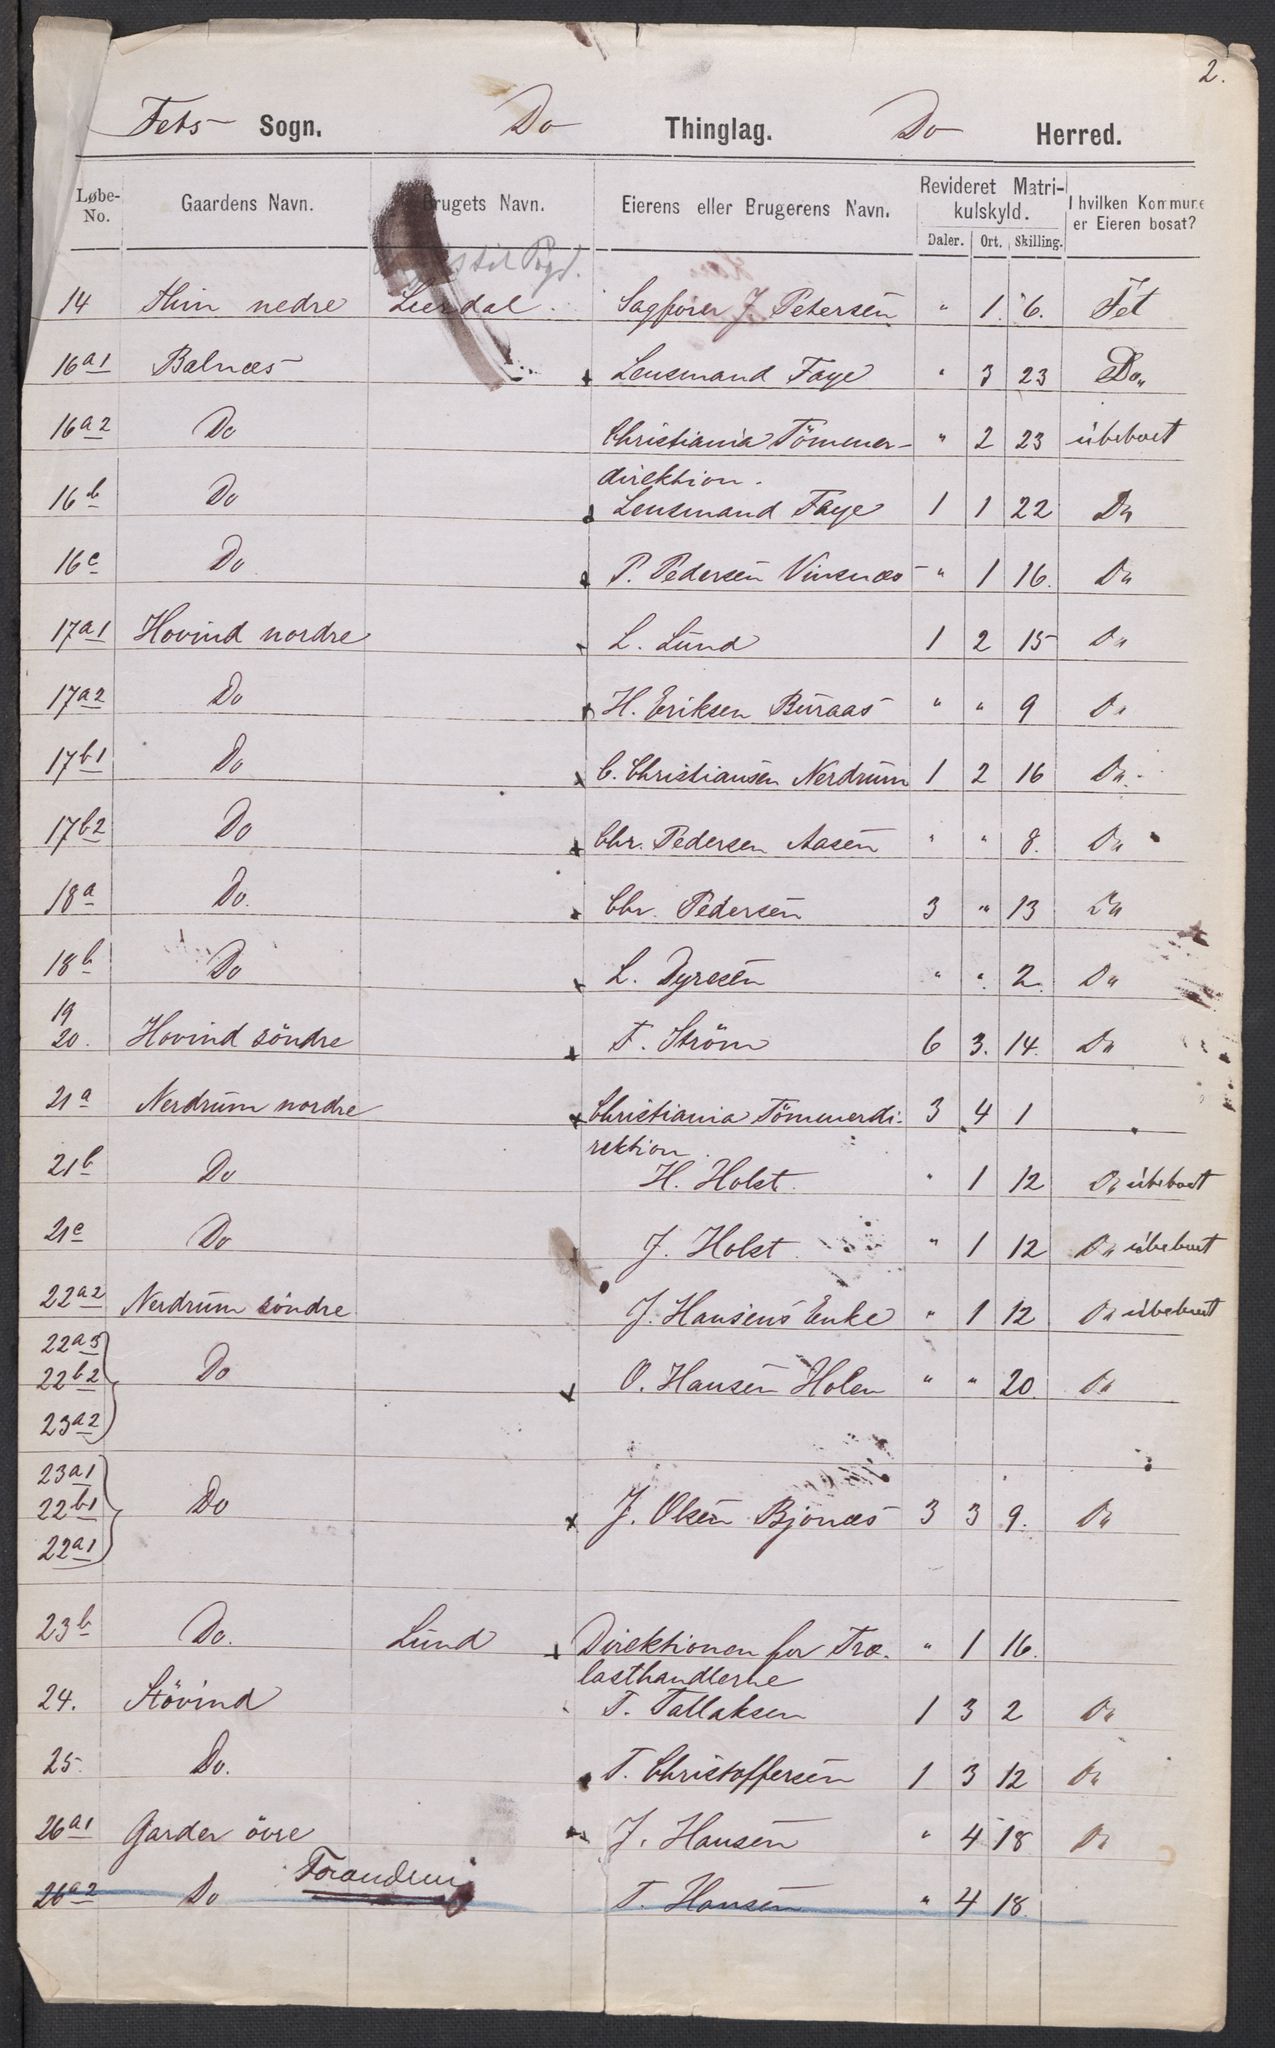 2.
Fets Sogn. Do Thinglag. Do Herred.
Løbe-No. Gaardens Navn. Brugets Navn. Eierens eller Brugerens Navn. Revideret Matrikulskyld. Daler. Ort. Skilling. I hvilken Kommune er Eieren bosat?
14 nedre Lierdal. Sagfører J Petersen " 1. 6. Fet
16a1 Balnæs Lensmand Faye " 3 23 Do"
16a2 Do Christiania Tömmer- " 2 23 ubeboet
direktion.
16b Do Lensmand Faye 1 1 22 Do
16c Do P. Pedersen Vinsnæs " 1 16. Do
17a1 Hovind nordre L. Lund 1 2 15 Do
17a2 Do H. Eriksen Buraas " " 9 Do
17b1 Do C. Christiansen Nerdrum 1 2 16 Do
17b2 Do Chr. Pedersen Aasen " " 8. Do
18a Do. Chr. Pedersen 3 " 13 Do
18b Do L. Dyresen " " 2 Do
19
20. Hovind söndre F. Ström 6 3. 14. Do
21a Nerdrum nordre Christiania Tömmerdi- 3 4 1
rektion
21b Do H. Holst. " 1 12 Do ubeboet
21c Do J. Holst " 1 12 Do ubeboet
22a2 Nerdrum söndre J. Hansens Enke " 1 12 Do ubeboet
22a3
22b2 Do O. Hansen Holen " " 20. Do
23a2
23a1
22b1 Do J. Olsen Bjonæs 3 3 9. Do
22a1
23b Do. Lund Direktionen for Træ- " 1 16.
lasthandlerne
24. Stövind T. Tallaksen 1 3 2 Do
25. Do. T. Christoffersen 1 3 12 Do
26a1 Garder övre J. Hansen " 4 18 Do
26a2 Do T. Hansen " 4 18